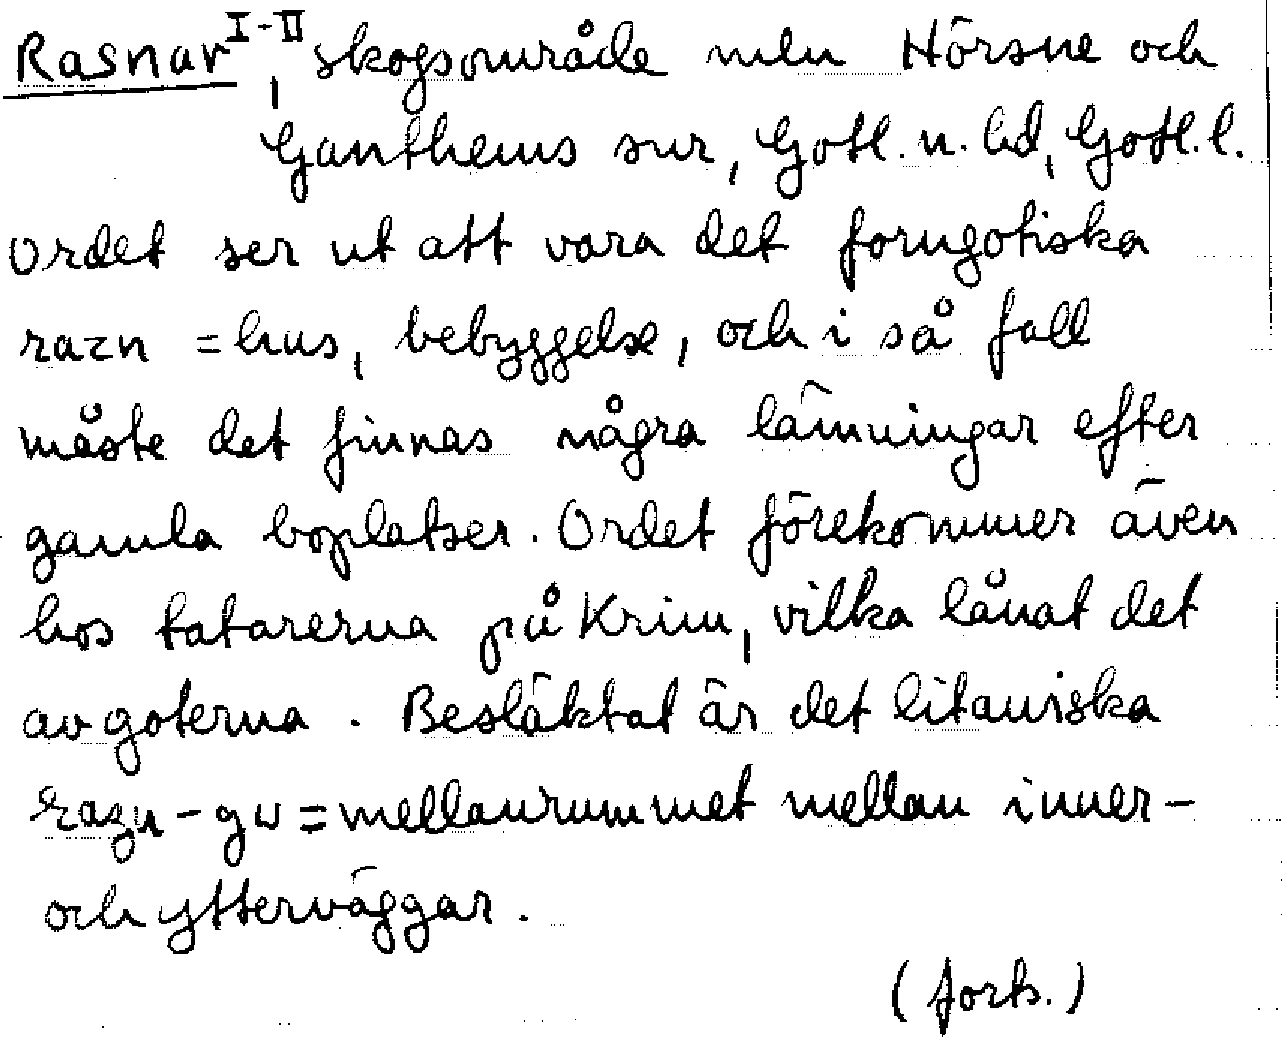 Rasnar I-II, skogsområde mln Hörsne och
Ganthems snr, Gotl. n. hd, Gotl. l.
Ordet ser ut att vara det forngotiska
razn = hus, bebyggelse, och i så fall
måste det finnas några lämningar efter
gamla boplatser. Ordet förekommer även
hos tatarerna på Krim, vilka lånat det
av goterna. Besläktat är det litauiska
= mellanrummet mellan inner-
och ytterväggar.
(forts.)